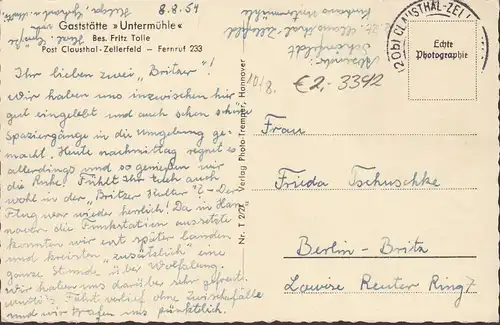 8.8.59
Gaststätte »Untermühle«
Bes. Fritz Tolle
Post Clausthal-Zellerfeld — Fernruf 233
Ihr lieben zwei „Britzer"!
Wir haben uns inzwischen hier
gut eingelebt und auch schon schöne
Spaziergänge in die Umgebung ge-
macht. Heute nachmittag regnet es
allerdings und so genießen wir
die Ruhe. Fühlt Ihr Euch auch
wohl in der „Britzer Hütte"? – Der
Flug war wieder herrlich! Da in Han-
nover die Funkstation aussetzte
konnten wir erst später landen
und kreisten „zusätzlich" eine
ganze Stunde über Wolfsburg.
Wir haben uns darüber sehr gefreut.
Fahrt verlief ohne Zwischenfälle
und wir trafen uns pünktlich.
Nr. T 2/21 Verlag Photo-Tremper, Hannover
Absender:
Clausthal-Zellerfeld
Untermühle
10/8.
€ 2,- 3392
(20b) CLAUSTHAL-ZELL
Echte
Photographie
Frau
Frieda Tschuschke
Berlin-Britz
Lowise Reuter Ring 7